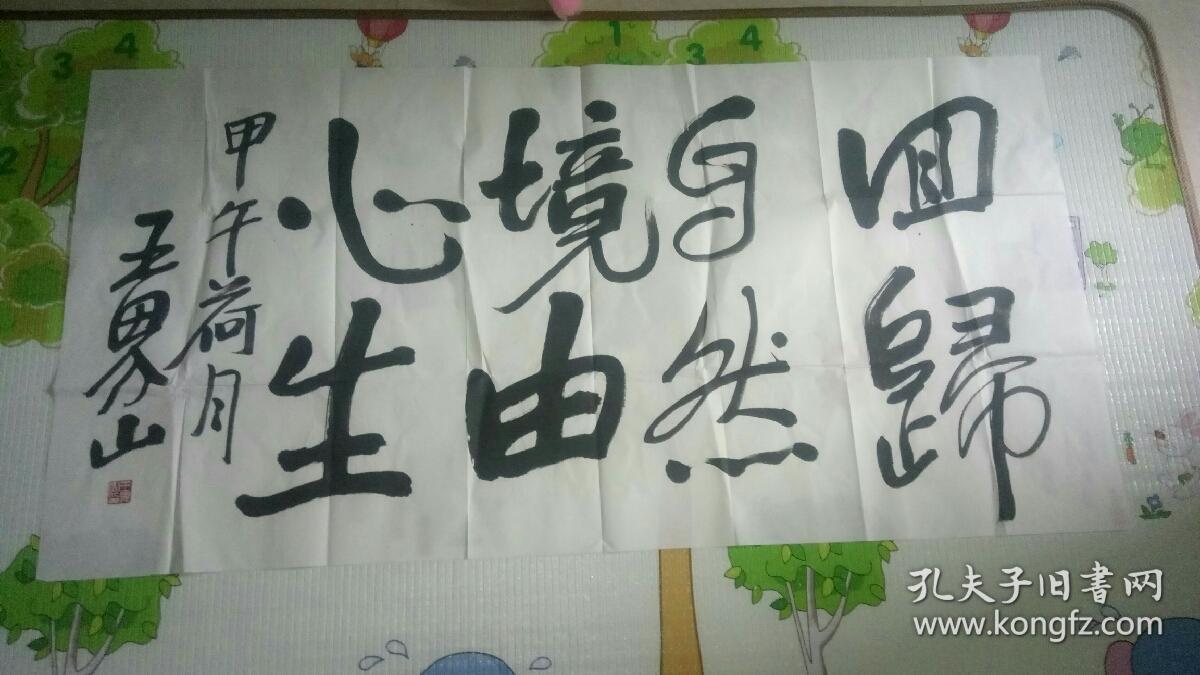 回歸
自然
境由
心生
甲午荷月
王界山
3 4
1
3 4
2
孔夫子旧書网
www.kongfz.com